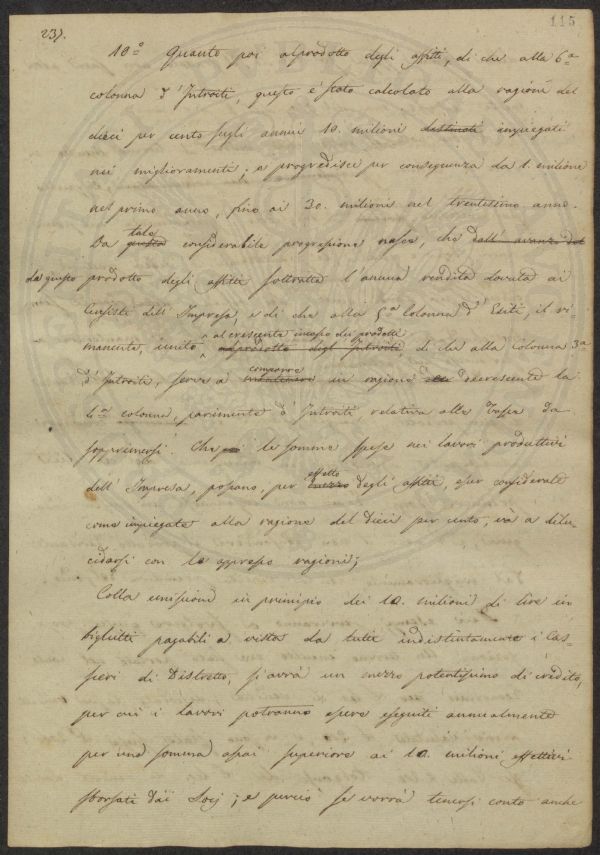 237.
115
10.° Quanto poi al prodotto degli affitti, di che alla 6.a
colonna d'Introiti, questo è stato calcolato alla ragione del
dieci per cento sugli annui 10. milioni destinati impiegati
nei miglioramenti; e progredisce per conseguenza da 1. milione
nel primo anno, fino ai 30. milioni nel trentesimo anno.
Da questa tale considerabile progressione nasce, che dall'avanzo del
da questo prodotto degli affitti sottratta l'annua rendita dovuta ai
Censisti dell'Impresa, e di che alla 5.a Colonna d'Esiti, il ri-
manente, unito al prodotto degl'Introiti al crescente incasso dei prodotti di che alla colonna 3.a
d'Introiti, serve a comporre in ragione decrescente la
4.a colonna, parimente d'Introiti relativa alle Tasse da
sopprimersi. Che le somme spese nei lavori produttivi
dell'Impresa, possano, per mezzo effetto degli affitti, esser considerate
come impiegate alla ragione del dieci per cento, và a dilu-
cidarsi con le appresso ragioni;
Colla emissione in principio dei 10. milioni di lire in
biglietti pagabili a vista da tutti indistintamente i Cas-
sieri di Distretto, si avrà un mezzo potentissimo di credito,
per cui i lavori potranno essere eseguiti annualmente
per una somma assai superiore ai 10. milioni effettivi
sborsati dai Socj; e perciò se vorrà tenersi conto anche